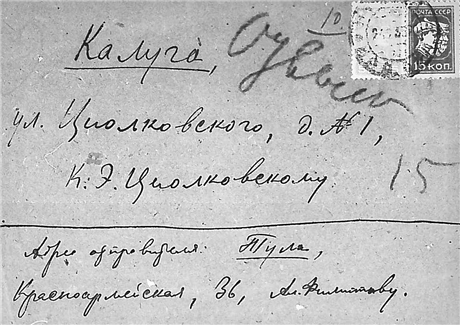 10
ПОЧТА СССР
15 КОП.
Калуга,
Отзыв
ул. Циолковского, д. №1,
К. Э. Циолковскому.
15
Адрес отправителя: Тула,
Красноармейская, 36, Ал. Филиппову.